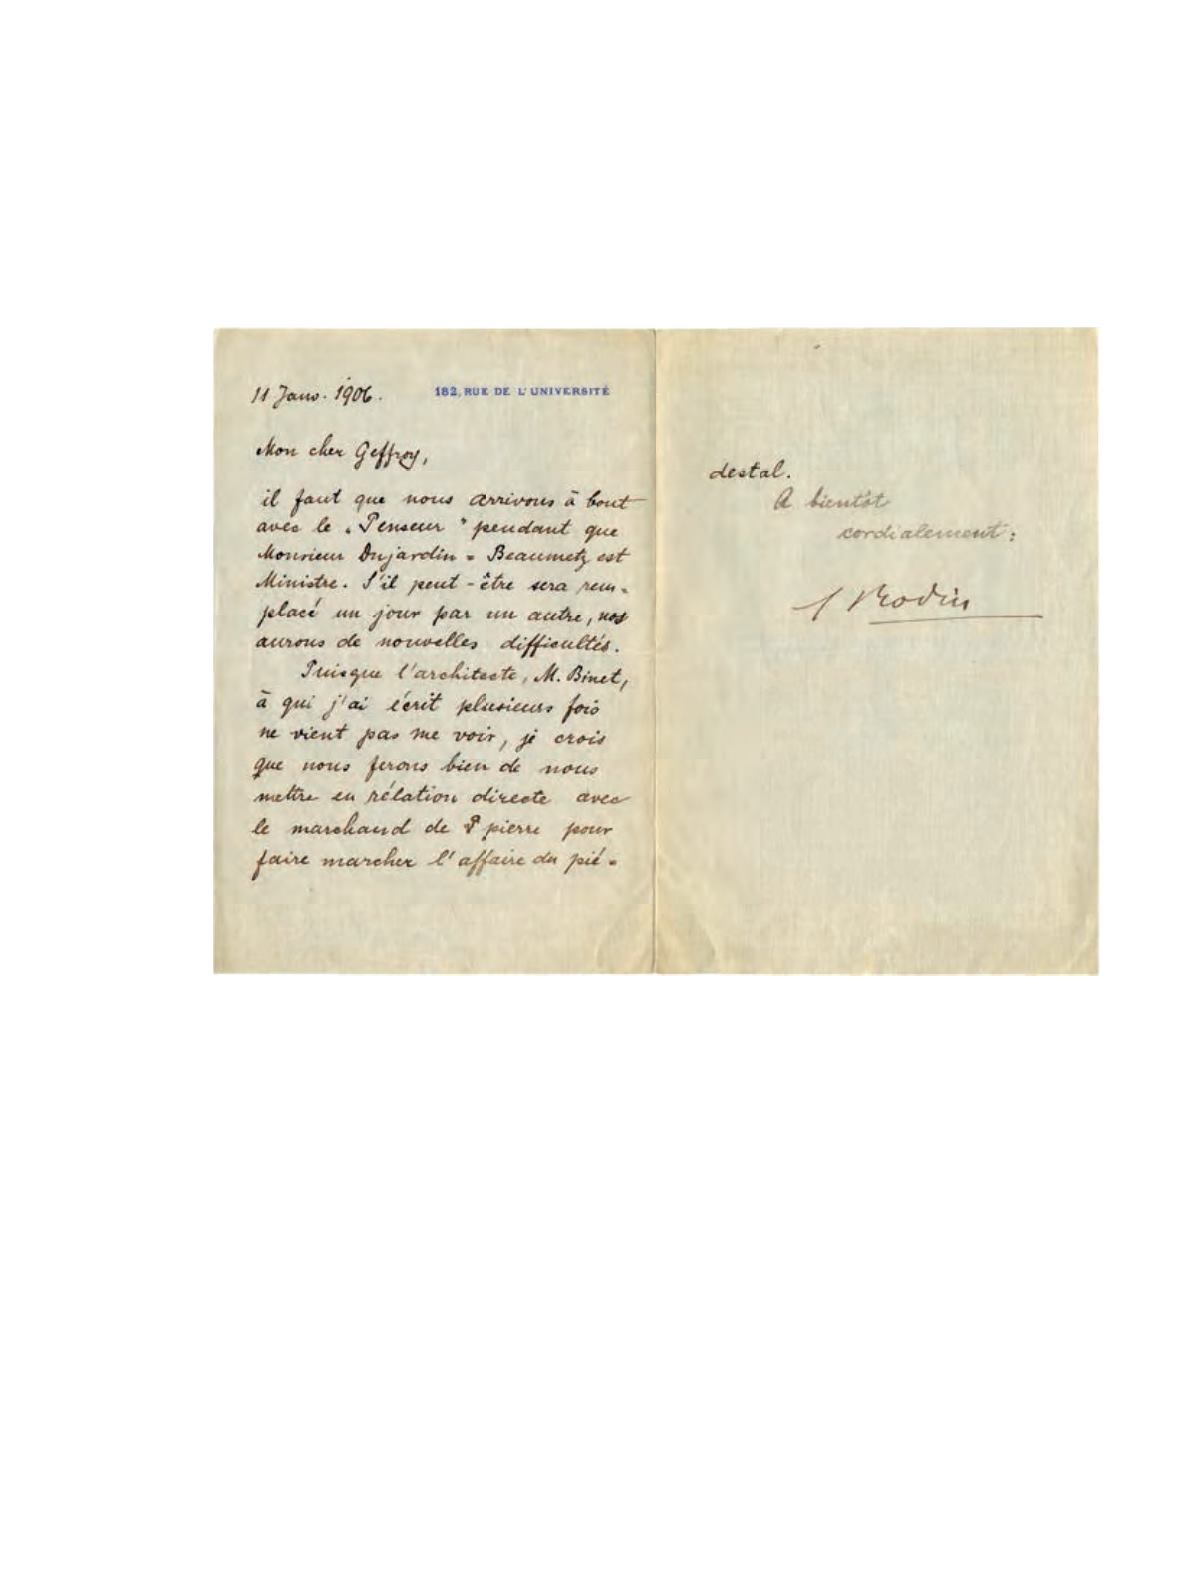 11 Janv. 1906. 182, RUE DE L'UNIVERSITÉ
Mon cher Geffroy,
il faut que nous arrivons à bout
avec le „Penseur” pendant que
Monsieur Dujardin = Beaumetz est
Ministre. S'il peut-être sera rem=
placé un jour par un autre, nos
aurons de nouvelles difficultés.
Puisque l'architecte, M. Binet,
à qui j'ai écrit plusieurs fois
ne vient pas me voir, je crois
que nous ferons bien de nous
mettre en rélation directe avec
le marchand de pierre pour
faire marcher l'affaire du pié=
destal.
A bientôt
cordialement:
A Rodin